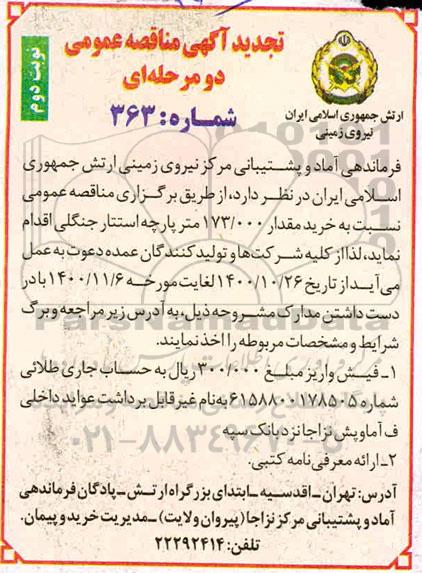 تجدید آگهی مناقصه عمومی
دو مرحله‌ای
شماره: ۳۶۳
نوبت دوم
ارتش جمهوری اسلامی ایران
نیروی زمینی
فرماندهی آماد و پشتیبانی مرکز نیروی زمینی ارتش جمهوری
اسلامی ایران در نظر دارد، از طریق برگزاری مناقصه عمومی
نسبت به خرید مقدار ۱۷۳/۰۰۰ متر پارچه استتار جنگلی اقدام
نماید، لذا از کلیه شرکت‌ها و تولیدکنندگان عمده دعوت به عمل
می‌آید از تاریخ ۱۴۰۰/۱۰/۲۶ لغایت مورخه ۱۴۰۰/۱۱/۶ با در
دست داشتن مدارک مشروحه ذیل، به آدرس زیر مراجعه و برگ
شرایط و مشخصات مربوطه را اخذ نمایند.
۱ـ فیش واریز مبلغ ۳۰۰/۰۰۰ ریال به حساب جاری طلائی
شماره ۶۱۵۸۸۰۰۱۷۸۵۰۵ به نام غیرقابل برداشت عواید داخلی
ف آماوپش نزاجا نزد بانک سپه
۲ـ ارائه معرفی‌نامه کتبی.
آدرس: تهران ـ اقدسیه ـ ابتدای بزرگراه ارتش ـ پادگان فرماندهی
آماد و پشتیبانی مرکز نزاجا (پیروان ولایت) ـ مدیریت خرید و پیمان.
تلفن: ۲۲۲۹۲۴۱۴
ParsNamadData
۰۲۱-۸۸۳۴۹۶۷۰-۵